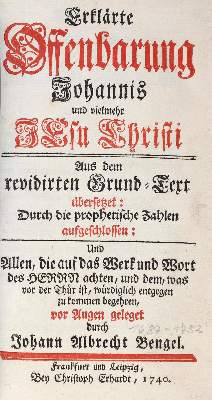 Erklärte
Offenbarung
Johannis
und vielmehr
JEsu Christi
Aus dem
revidirten Grund-Text
übersetzet:
Durch die prophetische Zahlen
aufgeschlossen:
Und
Allen, die auf das Werk und Wort
des HERRN achten, und dem, was
vor der Thür ist, würdiglich entgegen
zu kommen begehren,
vor Augen geleget
durch
1687-1752
Johann Albrecht Bengel.
Franckfurt und Leipzig,
Bey Christoph Erhardt, 1740.